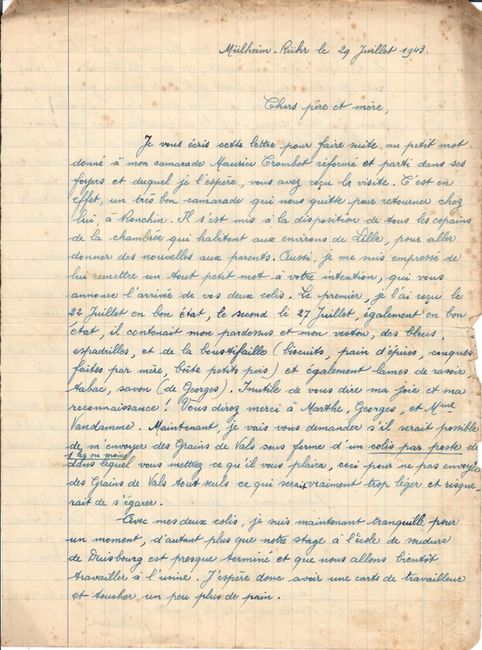 Mülheim-Rühr le 29 Juillet 1943.
Chers père et mère,
Je vous écris cette lettre pour faire suite au petit mot
donné à mon camarade Maurice Trombet réformé et parti dans ses
foyers et duquel je l'espère, vous avez reçu la visite. C'est en
effet, un très bon camarade qui nous quitte pour retourner chez
lui, à Ronchin. Il s'est mis à la disposition de tous les copains
de la chambrée qui habitent aux environs de Lille, pour aller
donner des nouvelles aux parents. Aussi, je me suis empressé de
lui remettre un tout petit mot à votre intention, qui vous
annonce l'arrivée de vos deux colis. Le premier, je l'ai reçu le
22 Juillet en bon état, le second le 27 Juillet, également en bon
état, il contenait mon pardessus et mon veston, des bleus,
espadrilles, et de la boustifaille (biscuits, pain d'épices, couques
faites par mère, boîte petits pois) et également lames de rasoir,
tabac, savon (de Georges). Inutile de vous dire ma joie et ma
reconnaissance ! Vous direz merci à Marthe, Georges, et Mme
Vandamme. Maintenant, je vais vous demander s'il serait possible
de m'envoyer des Grains de Vals sous forme d'un colis par poste de
1 kg ou moins
dans lequel vous mettrez ce qu'il vous plaira, ceci pour ne pas envoyer
des Grains de Vals tout seuls ce qui serait vraiment trop léger et risque-
rait de s'égarer.
Avec mes deux colis, je suis maintenant tranquille pour
un moment, d'autant plus que notre stage à l'école de soudure
de Duisbourg est presque terminé et que nous allons bientôt
travailler à l'usine. J'espère donc avoir une carte de travailleur
et toucher un peu plus de pain.